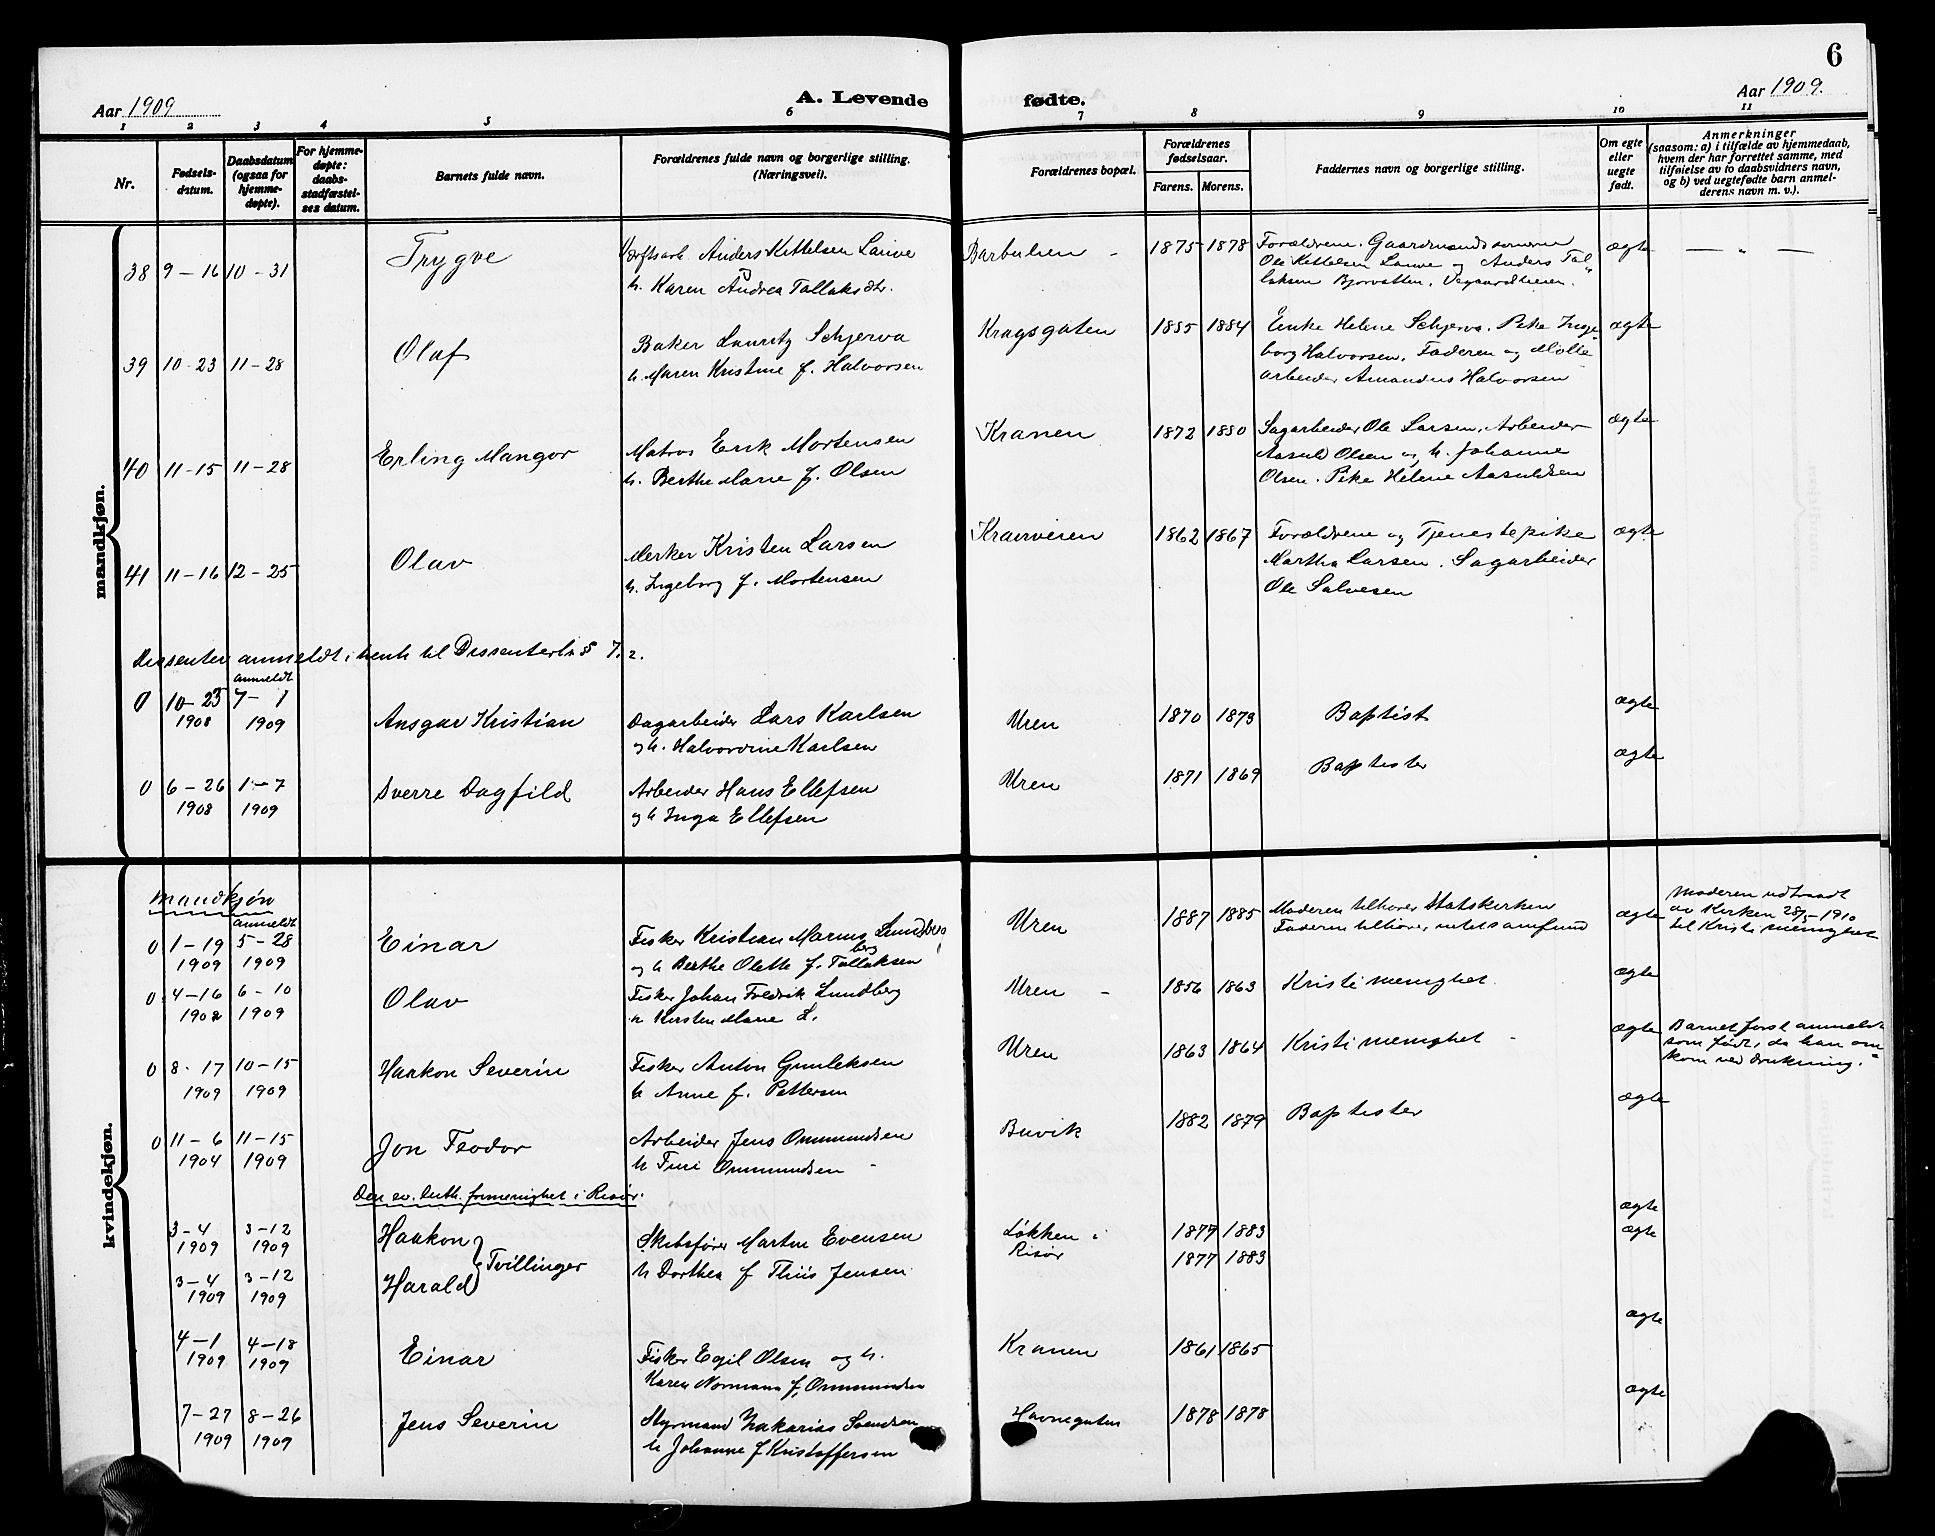 6
Aar 1909 A. Levende fødte. Aar 1909.
1 2 3 4 5 6 7 8 9 10 11
Nr.
Fødsels-
datum.
Daabsdatum
(ogsaa for
hjemme-
døpte).
For hjemme-
døpte:
daabs-
stadfæstel-
ses datum.
Barnets fulde navn.
Forældrenes fulde navn og borgerlige stilling.
(Næringsvei).
Forældrenes bopæl.
Forældrenes
fødselsaar.
Farens. Morens.
Faddernes navn og borgerlige stilling.
Om egte
eller
uegte
født.
Anmerkninger
(saasom: a) i tilfælde av hjemmedaab,
hvem der har forrettet samme, med
tilføielse av to daabsvidners navn,
og b) ved uegtefødte barn anmel-
derens navn m. v.).
mandkjøn.
38 9-16 10-31 Trygve
Anders Kittelsen Lauve
h. Karen Andrea Tallaksdtr.
Barbulien - 1875 1878
Forældrene. Gaardmandssønnerne
Ole Kittelsen Lauve og Anders Tal-
laksen Bjorvatten, Vegaardheien.
ægte — " —
39 10-23 11-28 Olaf
Baker Lauritz Schjerva
h. Maren Kristine f. Halvorsen
Kragsgaten 1885 1884
Enke Helene Schjerva. Pike Inge-
borg Halvorsen. Faderen og Mølle
arbeider Amandus Halvorsen
ægte
40 11-15 11-28 Erling Mangor
Matros Erik Mortensen
h. Berthe Marie f. Olsen
Kranen 1872 1880
Sagarbeider Ole Larsen, Arbeider
Aasuld Olsen og h. Johanne
Olsen. Pike Helene Aasuldsen
ægte
41 11-16 12-25 Olav
Merker Kristen Larsen
h. Ingeborg f. Mortensen
Kranveien 1862 1867
Forældrene og Tjenestepike
Martha Larsen. Sagarbeider
Ole Salvesen
ægte
Dissenter anmeldt i henh til Dissenterl. § 7. 2.
anmeldt
0 10-23 7-1
1908 1909
Ansgar Kristian
Dagarbeider Lars Karlsen
og h. Halvordine Karlsen
Uren 1870 1873 Baptist ægte
0 6-26 1-7
1908 1909
Sverre Dagfild
Arbeider Hans Ellefsen
og h Inga Ellefsen
Uren 1871 1869 Baptister ægte
kvindekjøn.
mandkjøn
anmeldt
0 1-19 5-28
1909 1909
Einar
Fisker Kristian Marius Lundberg
og h Berthe Olette f. Tallaksen
Uren 1887 1885
Moderen tilhører Statskirken
Faderen tilhører intet samfund
ægte
Moderen udtraadt
av Kirken 28/5-1910
til Kristi menighet
0 4-16 6-10
1902 1909
Olav
Fisker Johan Fredrik Lundberg
h Kirsten Marie L.
Uren - 1856 1863 Kristi menighet ægte
0 8-17 10-15
1909 1909
Haakon Severin
Fisker Anton Gunleksen
h Anne f. Pettersen
Uren 1863 1864 Kristi menighet - ægte
Barnet først anmeldt
som født, da han om-
kom ved drukning.
0 11-6 11-15
1904 1909
Jon Teodor
Arbeider Jens Ommundsen
h Turi Ommundsen -
Buvik 1882 1879 Baptister ægte
Den ev. luth. frimenighet i Risør.
3-4 3-12
1909 1909
Haakon
3-4 3-12
1909 1909
Harald
Tvillinger
Skibsfører Martin Evensen
h Dorthea f Thiis Jensen
Løkken i
Risør
1877 1883
1877 1883
ægte
ægte
4-1 4-18
1909 1909
Einar
Fisker Egil Olsen og h.
Karen Normana f. Ommundsen
Kranen 1861 1865 ægte
7-27 8-26
1909 1909
Jens Severin
Styrmand Zakarias Svendsen
h Johanne f Kristoffersen
Havnegaten 1878 1878 ægte